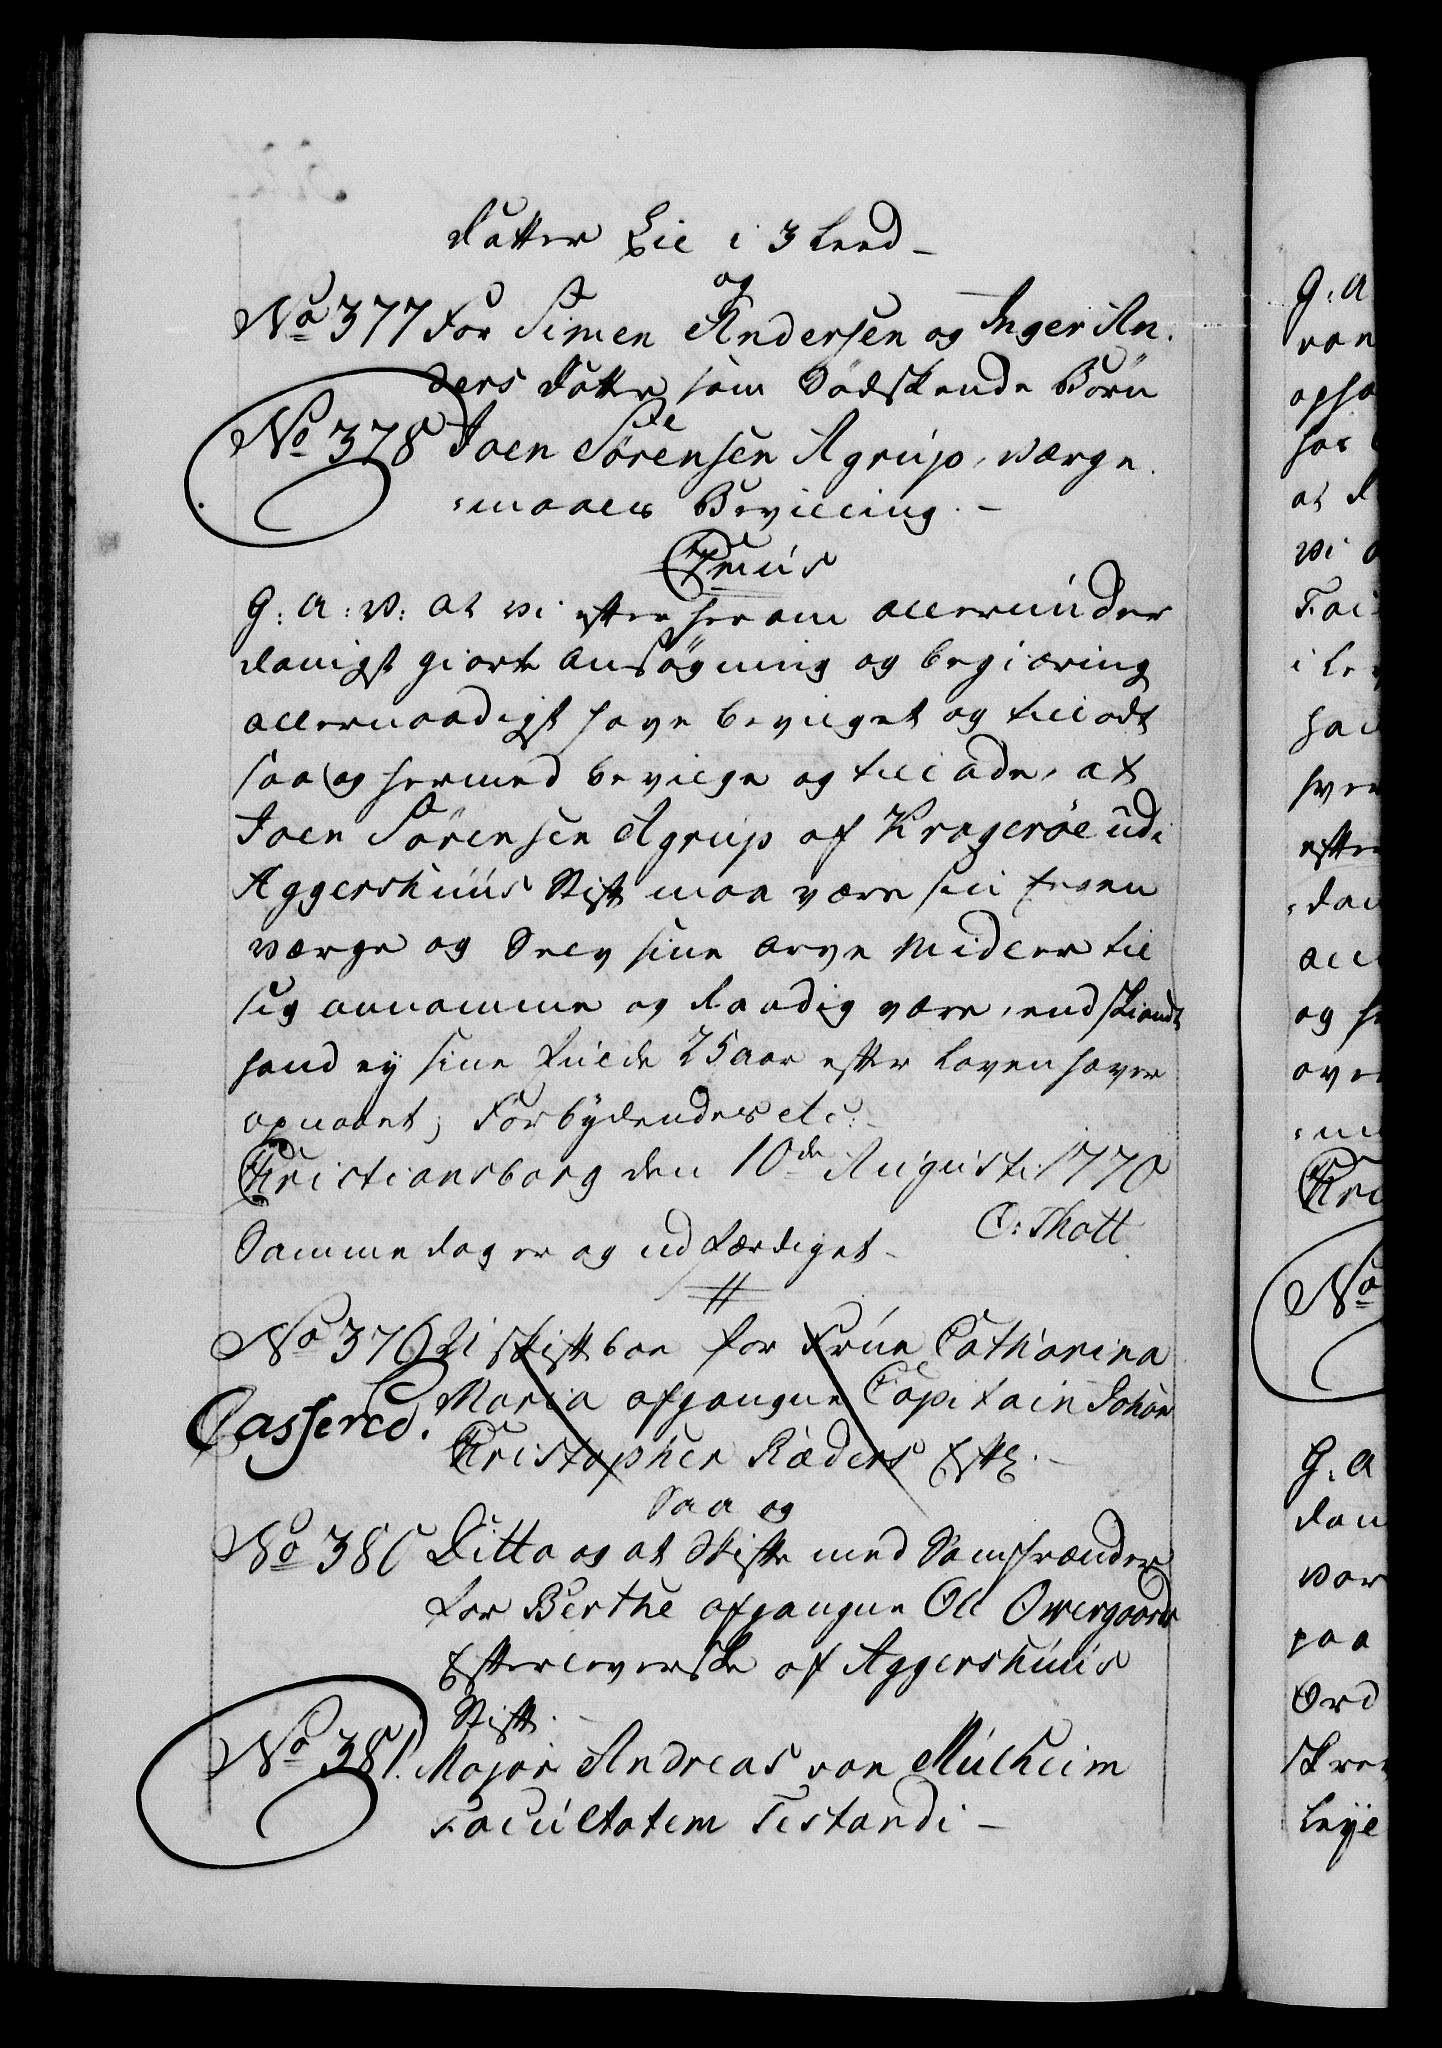 datter Lie i 3 Leed -
og
No 377 For Simen Andersen og Inger An-
ders datter som Sødskende Børn
No 378 Joen Sørensen Agrup, værge-
=maals Bevilling. -
Cmus
G: A: V: at vi efter herom allerunder
danigst giorte Ansøgning og begiæring
allernaadigst have bevilget og tilladt
saa og hermed bevilge og tillade, at
Joen Sørensen Agrup af Kragerøe udi
Aggershuus Stift maa være sin Egen
værge og Selv sine Arve Midler til
sig annamme og raadig være, endskiønt
hand ey sine fulde 25 aar efter Loven haver
opnaaet; Forbydendes etc:
Christiansborg den 10de Augusti 1770
C: Thott
Samme dag er og udfærdiget -
No 379 Ui skiftboe for Frue Catharina
Cassered. Maria afgangne Capitain Johan
Christopher Ræders Eftr. -
Saa og
No 380 Ditto og at Skifte med Samfrænder
for Berthe afgangne Ole Owergaards
Efterleverske af Aggershuus
Stift. -
No 381. Major Andreas von Mulheim
Facultatem Testandi -
G: A
van
opho
hos
at d
vi
Foi
i Le
hver
efter
=dan
all
og h
ove
Chri
No
G: A
dan
vor
paa
Ord
Skre
Leye